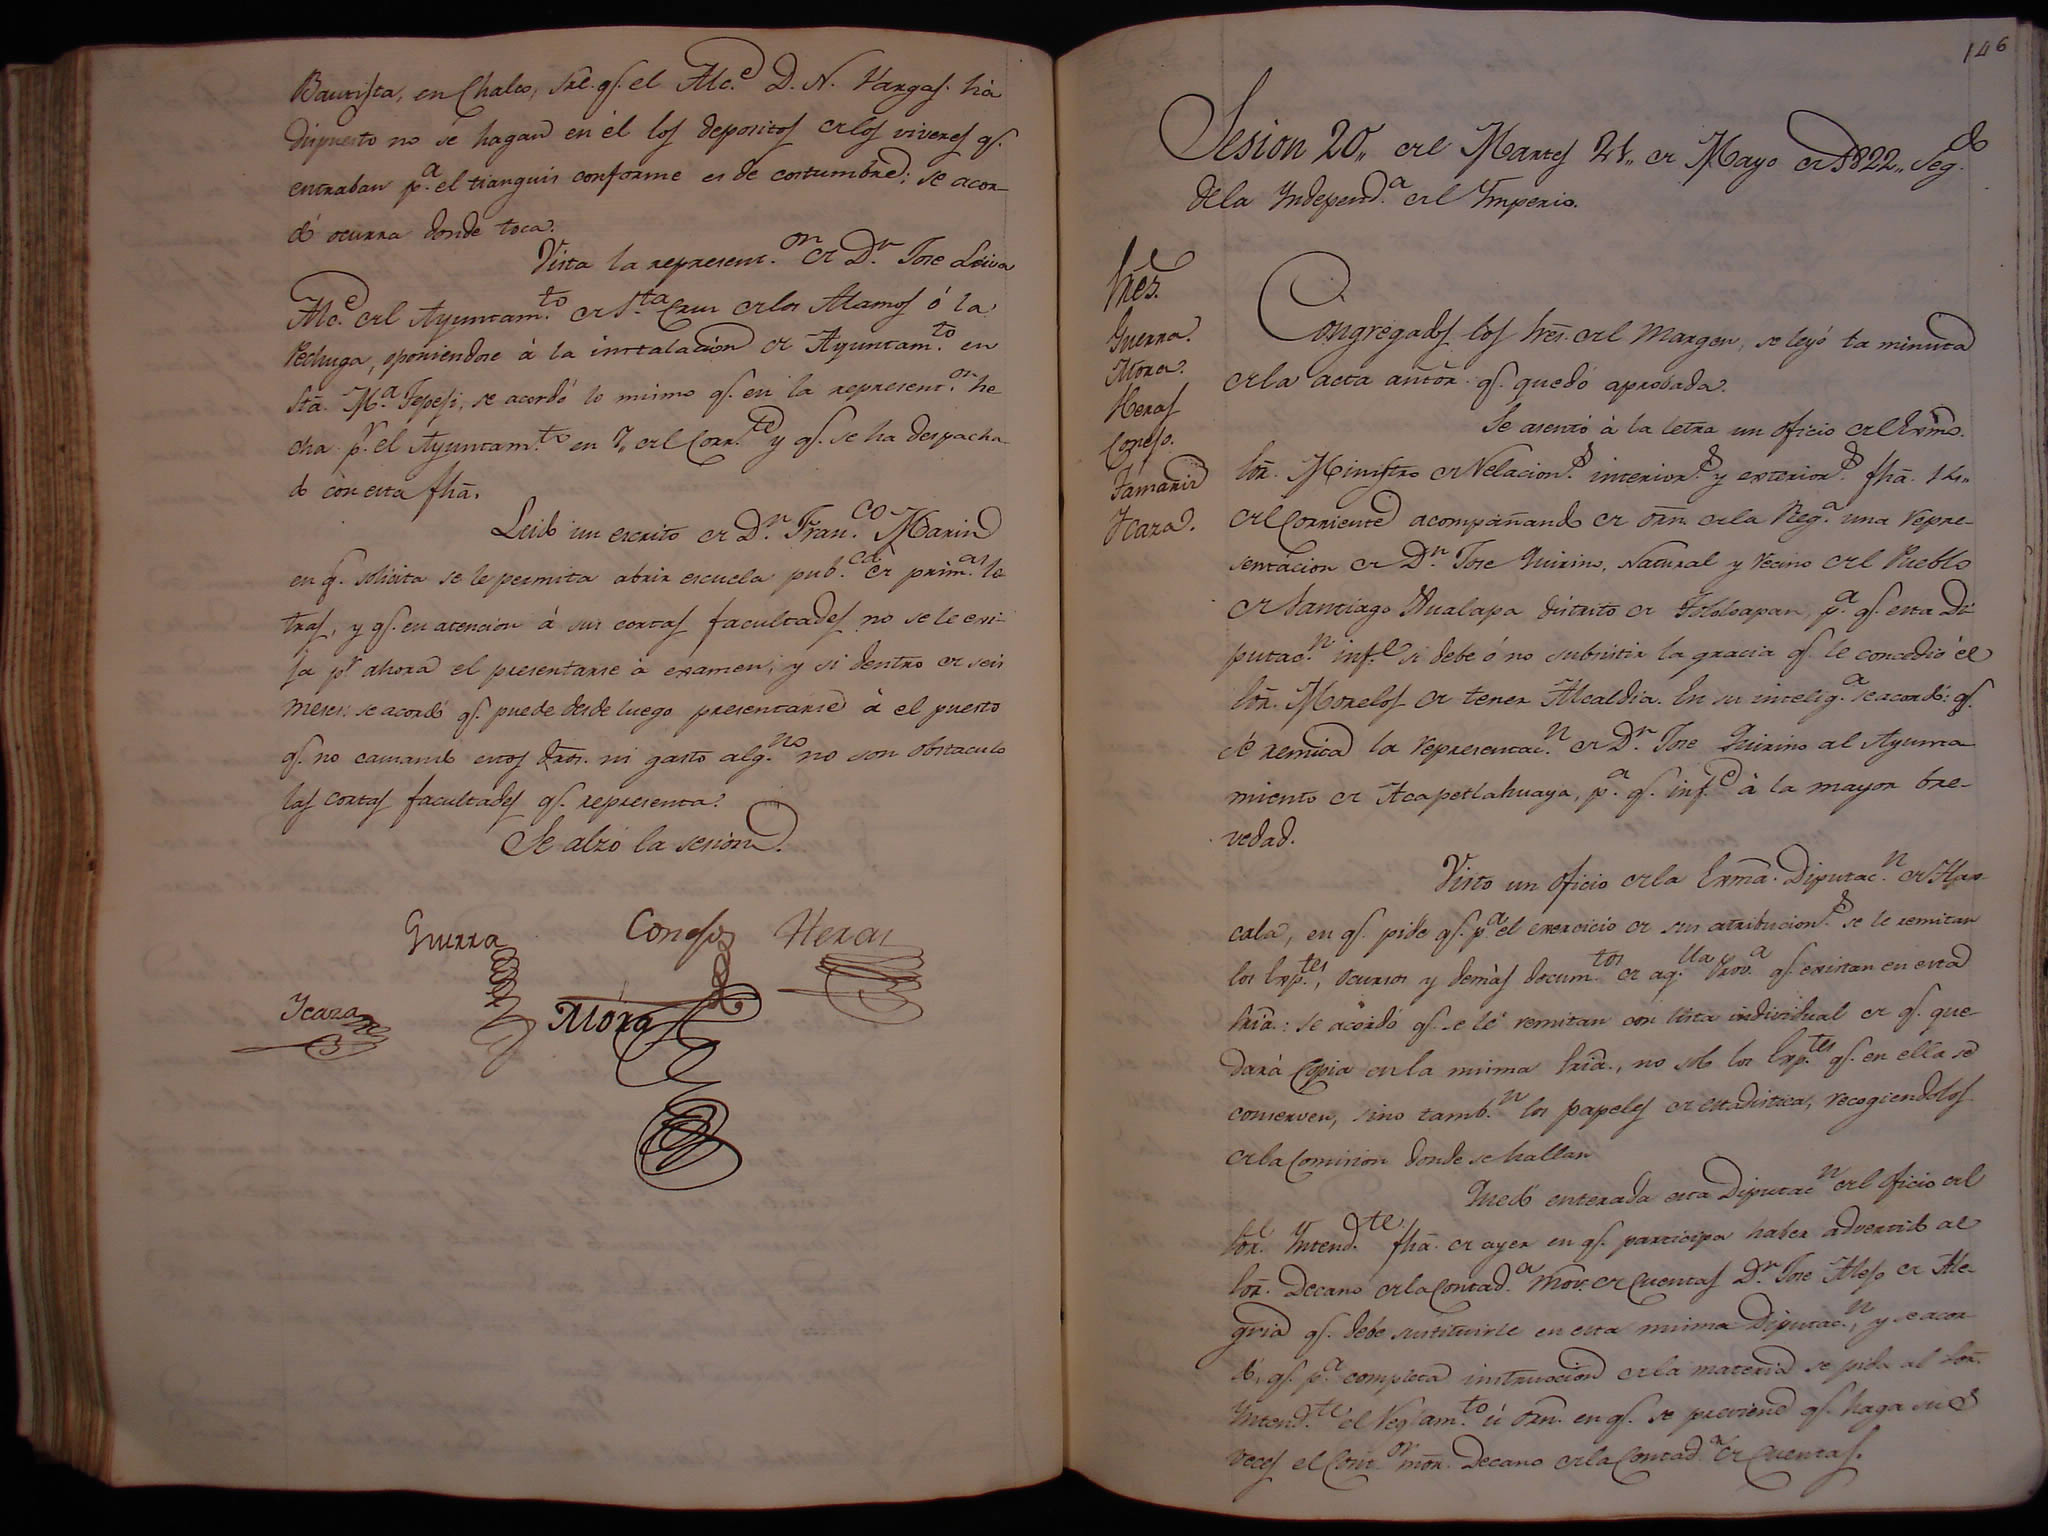 Bautista, en Chalco, sre. qe. el Alc.e D. N. Vargas. ha
dispuesto no se hagan en él los depositos de los viveres qe.
entraban p.a el tianguis conforme es de costumbre; se acor-
dó ocurra donde toca.
Vista la represent.on de D.n Jose Leiva
Alc.e del Ayuntam.to de S.ta Cruz de los Alamos ó la
Pechuga, oponiendose à la instalacion de Ayuntam.to en
Sta. M.a Tepeji, se acordó lo mismo qe. en la represent.on he
cha pr. el Ayuntam.to en 7,, del Corr.te y qe. se ha despacha-
do con esta fha.
Leido un escrito de D.n Fran.co Marin
en qe. solicita se le permita abrir escuela pub.ca de prim.as le
tras, y qe. en atencion á sus cortas facultades no se le exi-
ja pr. ahora el presentarse à examen, y si dentro de seis
meses: se acordó qe. puede desde luego presentarse à el puesto
qe. no causando estos dros. ni gasto alg.no no son obstaculo
las cortas facultades qe. representa.
Se alzó la sesion.
Guerra Conejo Heras
Icaza Mora
146
Sesion 20,, del Martes 21,, de Mayo de 1822,, Seg.do
de la Independ.a del Imperio.
Sres.
Guerra.
Mora.
Heras
Conejo.
Tamariz
Icaza.
Congregados los Sres. del Margen, se leyó la minuta
de la acta antor. qe. quedó aprobada.
Se asentó à la letra un oficio del Exmo.
Sor. Ministro de Relacion.s interior.s y exterior.s fha.
del Corriente acompañando de orn. de la Reg.a una repre-
sentacion de D.n Jose Quirino, Natural y Vecino del Pueblo
de Santiago distrito de p.a qe. esta Di
putac.n inf.e si debe ó no subsistir la gracia qe. le concedió el
Sor. Morelos de tener Alcaldia. En su intelig.a se acordó: qe.
se remita la representac.n de D.n Jose Quirino al Ayunta
miento de Acapetlahuaya, p.a qe. inf.e à la mayor bre-
vedad.
Visto un oficio de la Exma. Diputac.n de Tlax-
cala, en qe. pide qe. p.a el exercicio de sus atribucion.s se le remitan
los Exp.tes, ocursos y demàs docum.tos de aq.lla Prov.a qe. existan en esta
Sria.: se acordó qe. se le remitan con lista individual de qe. que-
dará Copia en la misma Sria., no solo los Exp.tes qe. en ella se
conserven, sino tamb.n los papeles de estadistica, recogiendolos
de la Comision donde se hallan
Quedó enterada esta Diputac.n del oficio del
Sor. Intend.te fha. de ayer en qe. participa haber advertido al
Sor. Decano de la Contad.a mor. de Cuentas D.n Jose Alejo de Ale-
gria qe. debe sustituirle en esta misma Diputac.n, y se acor
dó, qe. p.a completa instruccion de la materia se pida al Sor.
Intend.te el Reglam.to ú orn. en qe. se previene qe. haga sus
veces el Cont.or mor. Decano de la Contad.a de Cuentas.